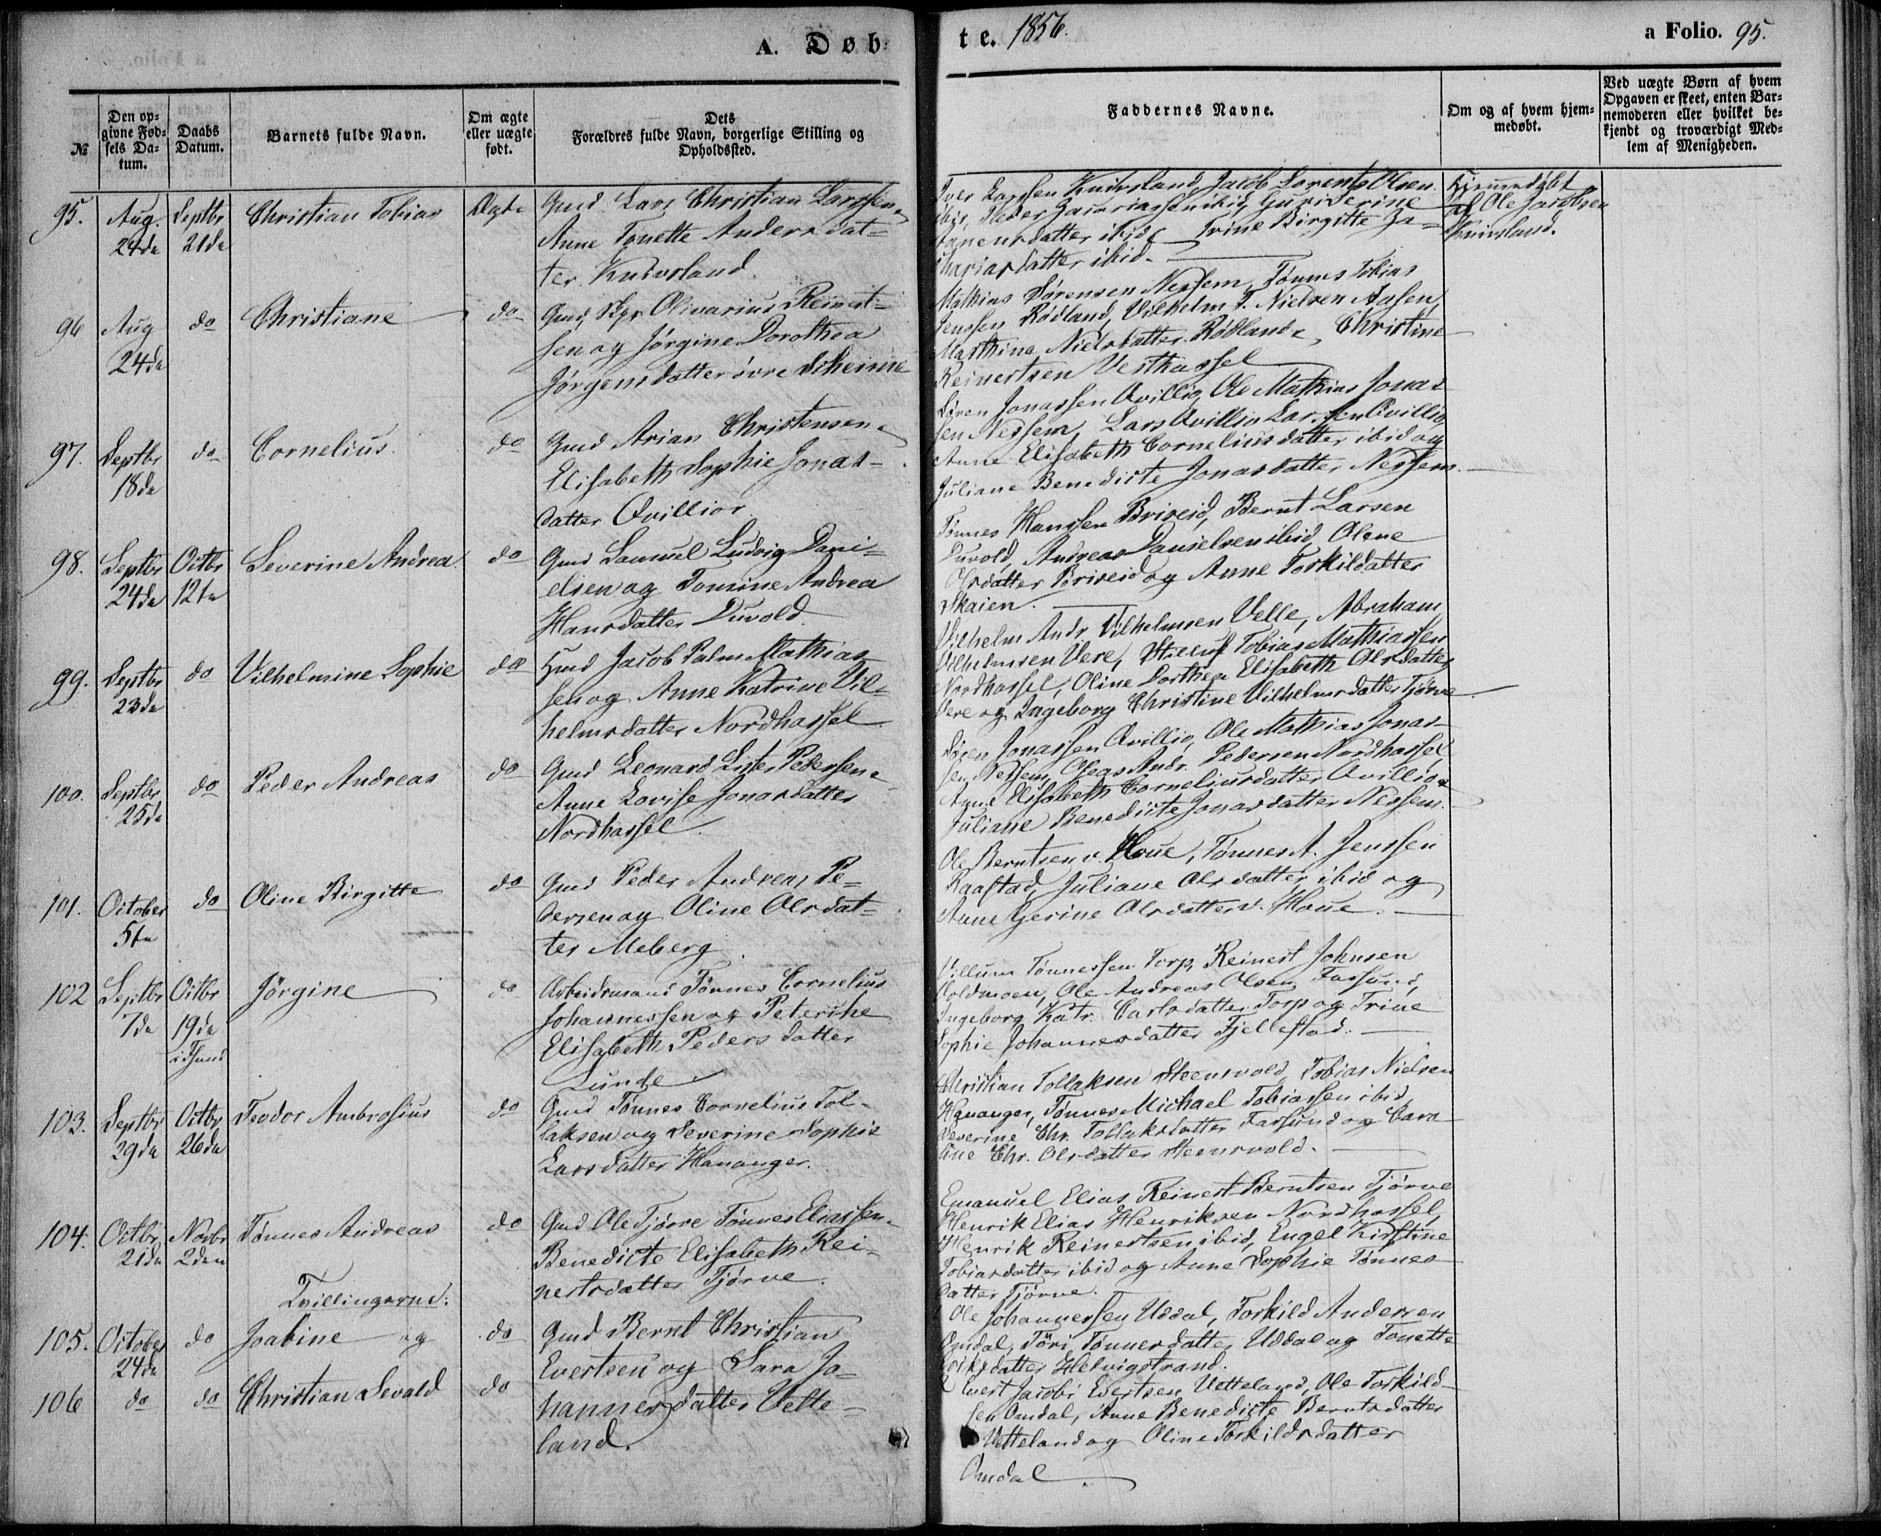 A. Døb-
te. 1856.
a Folio. 95.
№
Den op-
givne Fød-
sels Da-
tum.
Daabs
Datum.
Barnets fulde Navn.
Om ægte
eller uægte
født.
Dets
Forældres fulde Navn, borgerlige Stilling og
Opholdssted.
Faddernes Navne.
Om og af hvem hjem-
medøbt.
Ved uægte Børn af hvem
Opgaven er skeet, enten Bar-
nemoderen eller hvilket be-
kjendt og troværdigt Med-
lem af Menigheden.
95.
Aug.
24de
Septbr
21de
Christian Tobias
Ægte
Gmd Lars Christian Larssen
Anne Tonette Andersdat-
ter Knivsland.
Iver Larssen Knivsland, Jacob Lorents Olsen
ibid, Peder Zacariassen ibid,
datter ibid Trine Birgitte Za-
chariasdatter ibid.
Hjemmedøbt
af Ole Jacobsen
Knivsland.
96
Aug
24de
do
Christiane
do
Gmd, Skpr Olivarius Reinert-
sen og Jørgine Dorothea
Jørgensdatter øvre Skeime
Mathias Sørensen Nessem, Tønnes Tobias
Jenssen Rødland, Vilhelm T. Nielsen Aasen,
Marthina Nielsdatter Rødland, Christine
Reinertsen Vesthassel
97.
Septbr
18de
do
Cornelius.
do
Gmd Arian Christensen
Elisabeth Sophie Jonas-
datter Qvillior
Søren Jonassen Qvillio, Ole Mathias Jonas-
sen Nessem, Lars Qvillio Larssen Qvillio
Anne Elisabeth Corneliusdatter ibid og
Juliane Benedicte Jonasdatter Nessem.
98.
Septbr
24de
Octbr
12te
Severine Andrea
do
Gmd Samuel Ludvig Dani-
elsen og Tomine Andrea
Hansdatter Duvold.
Tønnes Hanssen Briseid, Bernt Larsen
Duvold, Andreas Danielsen ibid, Olene
Olsdatter Briseid og Anne Torkildatter
Skaien.
99.
Septbr
23de
do
Vilhelmine Sophie
do
Hmd Jacob Palm Mathias-
sen og Anne Katrine Vil-
helmsdatter Nordhassel
Vilhelm Andr. Vilhelmsen Velle, Abraham
Vilhelmsen Vere, Tobias Mathiassen
Nordhassel, Oline Dorthea Elisabeth Olsdatter
Vere og Ingeborg Christine Vilhelmsdatter Tjørve
100.
Septbr
25de
do
Peder Andreas
do
Gmd Leonard Lister Pedersen
Anne Lovise Jonasdatter
Nordhassel
Søren Jonassen Qvillio, Ole Mathias Jonas-
sen Nessem, Oleas Andr. Pedersen Nordhassel
Anne Elisabeth Corneliusdatter Qvillio
Juliane Benedicte Jonasdatter Nessem.
101.
October
5te
do
Oline Birgitte
do
Gmd Peder Andreas Pe-
dersen og Oline Olsdat-
ter Meberg
Ole Berntsen v. Houe, Tønnes A. Jenssen
Raastad, Juliane Olsdatter ibid og
Anne Gerine Olsdatter v. Houe.
102
Septbr
7de
Octbr
19de
i Fsund
Jørgine
do
Arbeidsmand Tønnes Cornelius
Johannessen og Peterike
Elisabeth Pedersdatter
Lunde
Villum Tønnessen Torp, Reinert Johnsen
Holdmoen, Ole Andreas Olsen Farsund,
Ingeborg Katr. Carlsdatter Torp og Trine
Sophie Johannesdatter Fjellestad.
103.
Septbr
29de
Octbr
26de
Teodor Ambrosius
do
Gmd Tønnes Cornelius Tol-
laksen og Severine Sophie
Larsdatter Hananger.
Christian Tollaksen Steensvold, Tobias Nielsen
Hananger, Tønnes Michael Tobiassen ibid,
Severine Chr. Tollaksdatter Farsund og Caro-
line Chr. Olsdatter Steensvold.
104.
Octbr
21de
Novbr
2den
Tønnes Andreas
do
Gmd Ole Tjørve Tønnes Eliassen
Benedicte Elisabeth Rei-
nertsdatter Tjørve.
Emanuel Elias Reinert Berntsen Tjørve
Henrik Elias Henriksen Nordhassel,
Henrik Reinertsen ibid, Engel Kirstine
Tobiasdatter ibid og Anne Sophie Tønnes-
datter Tjørve.
Tvillingerne:
105.
October
24de
do
Joabine og
do
Gmd Bernt Christian
Evertsen og Sara Jo-
hannesdatter Vette-
land.
Ole Johannessen Uddal, Torkild Andersen
Omdal, Töri Tønnesdatter Uddal og Tonette
Eriksdatter Helvigstrand.
106
do
do
Christian Sevald
do
Evert Jacobi Evertsen Vetteland, Ole Torkild-
sen Omdal, Anne Benedicte Berntsdatter
Vetteland og Oline Torkildsdatter
Omdal